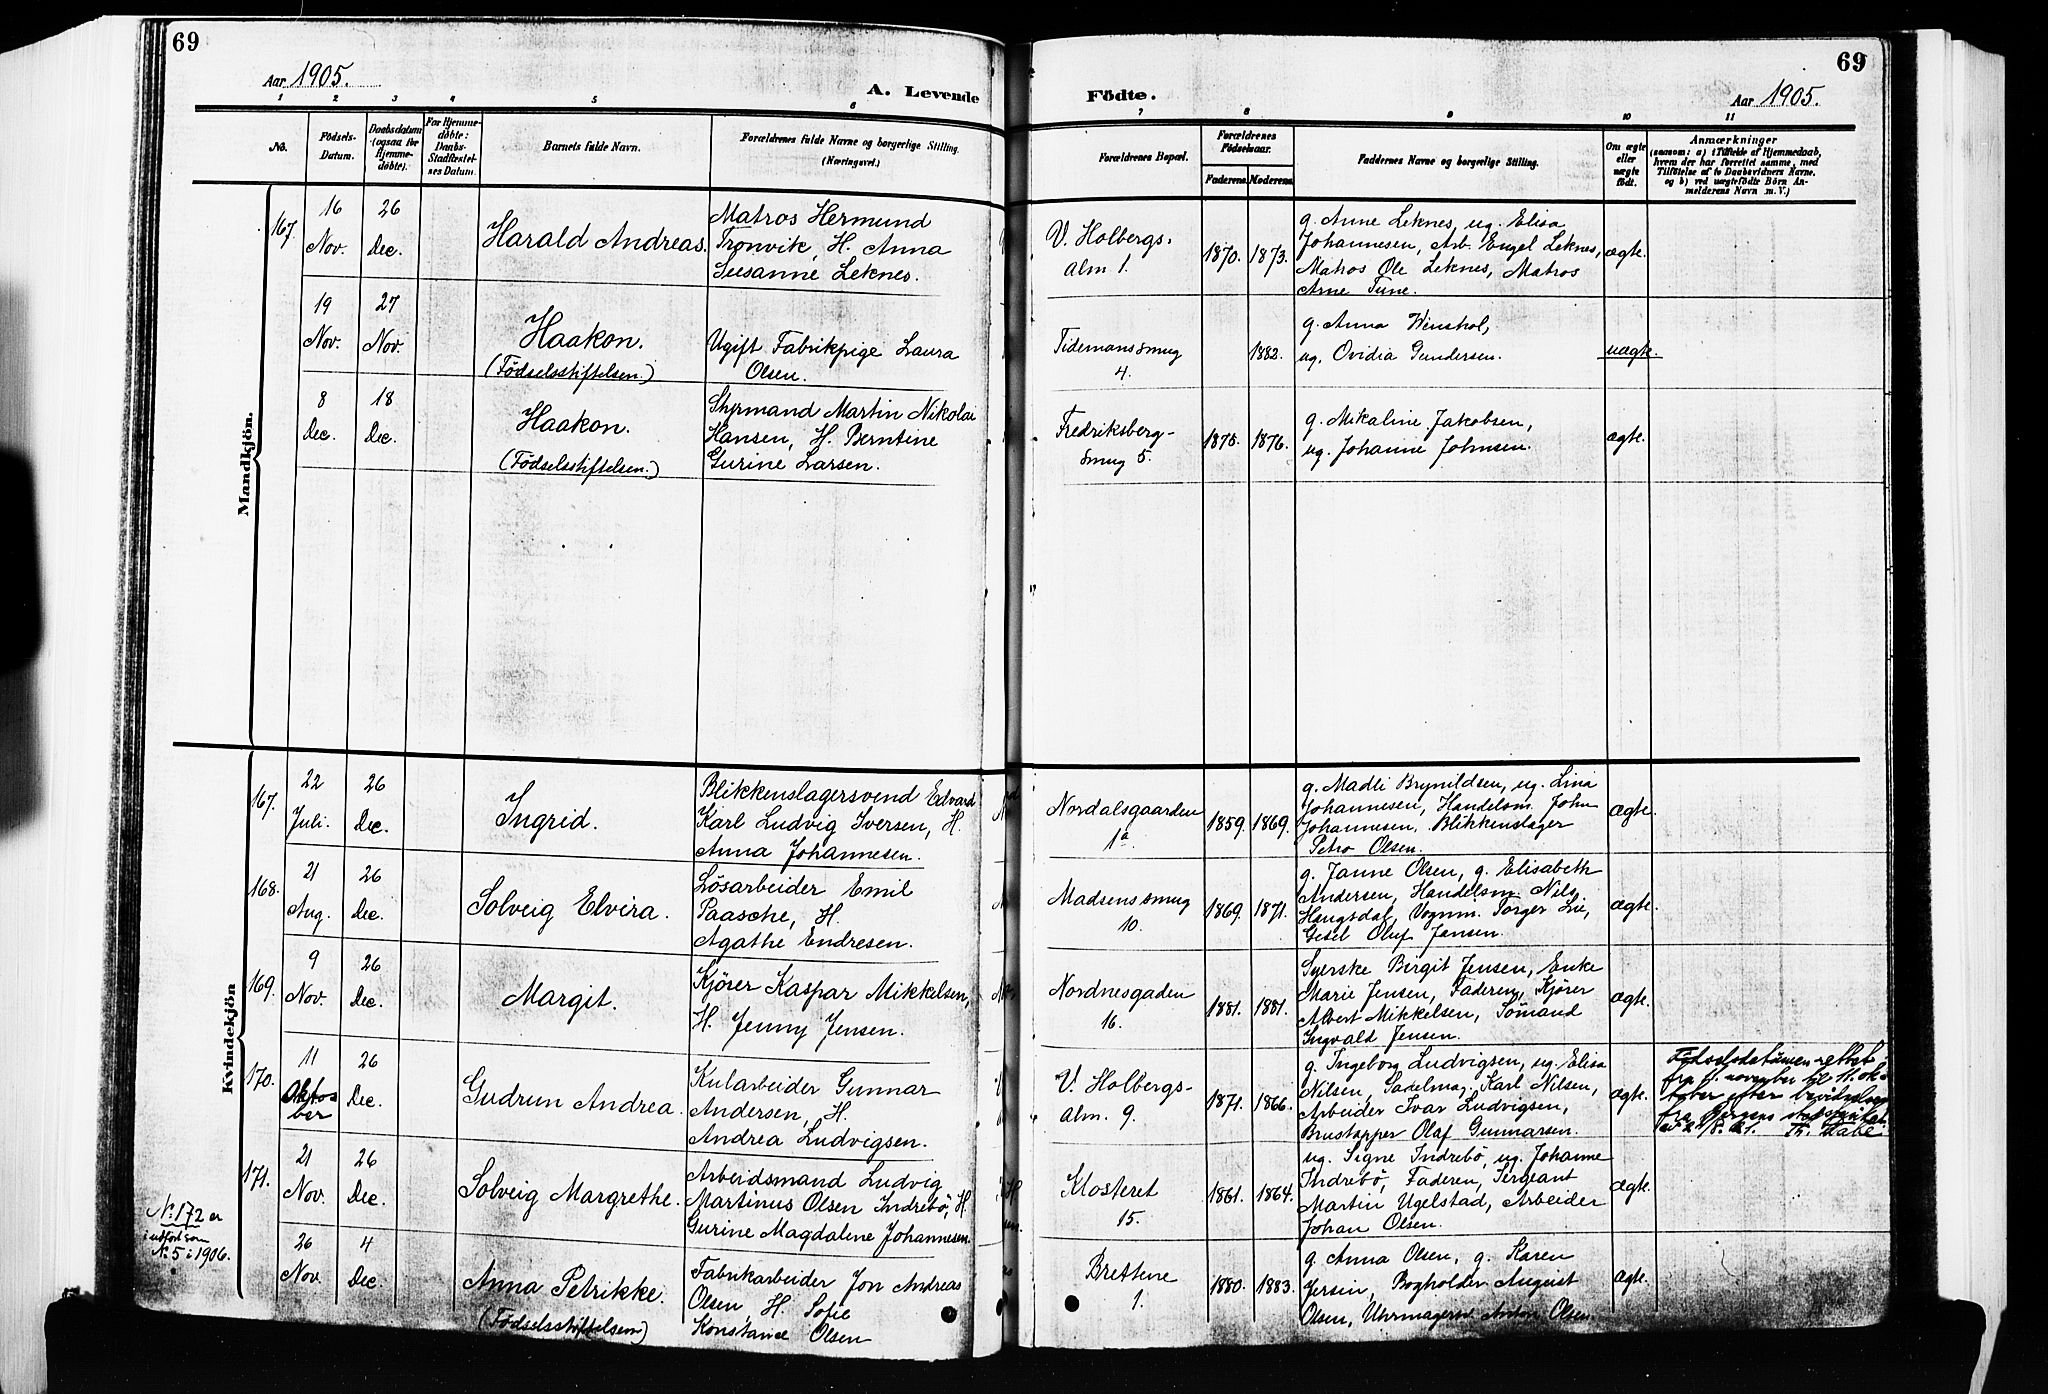 69
Aar 1905.
A. Levende
1 2 3 4 5 6
No.
Födsels-
Datum.
Daabsdatum
(ogsaa for
Hjemme-
döbte).
For Hjemme-
döbte:
Daabs-
Stadfæstel-
ses Datum.
Barnets fulde Navn.
Forældrenes fulde Navne og borgerlige Stilling.
(Næringsvei.)
Mandkjön.
167.
16
Nov.
26
Dec.
Harald Andreas.
Matros Hermund
Tronvik, H. Anna
Susanne Leknes.
19
Nov.
27
Nov.
Haakon.
(Födselsstiftelsen.)
Ugift Fabrikpige Laura
Olsen.
8
Dec.
18
Dec.
Haakon.
(Födselsstiftelsen.)
Styrmand Martin Nikolai
Hansen, H. Berntine
Gurine Larsen.
Kvindekjön
167.
22
Juli.
26
Dec.
Ingrid.
Blikkenslagersvend Edvard
Karl Ludvig Iversen, H.
Anna Johannesen.
168.
21
Aug.
26
Dec.
Solveig Elvira.
Lösarbeider Emil
Paasche, H.
Agathe Endresen.
169.
9
Nov.
26
Dec.
Margit.
Kjörer Kaspar Mikkelsen,
H. Jenny Jensen.
170.
11
Oktober
26
Dec.
Gudrun Andrea.
Kularbeider Gunnar
Andersen, H.
Andrea Ludvigsen.
171.
21
Nov.
26
Dec.
Solveig Margrethe.
Arbeidsmand Ludvig
Martinus Olsen Indrebö, H.
Gurine Magdalene Johannesen.
No. 172 er
indfört som
No. 5 i 1906.
26
Nov.
4
Dec.
Anna Petrikke.
(Födselsstiftelsen)
Fabrikarbeider Jon Andreas
Olsen H. Sofie
Konstance Olsen
69
Födte.
Aar 1905.
7 8 9 10 11
Forældrenes Bopæl.
Forældrenes
Födselsaar.
Faderens. Moderens.
Faddernes Navne og borgerlige Stilling.
Om ægte
eller
uægte
födt.
Anmærkninger
(saasom: a) i Tilfælde af Hjemmedaab,
hvem der har forrettet samme, med
Tilföielse af to Daabsvidners Navne,
og b) ved uægtefödte Börn An-
melderens Navn m. V.)
V. Holbergs.
alm 1.
1870. 1873.
g. Anne Leknes, ug. Elisa
Johannesen, Arb. Engel Leknes,
Matros Ole Leknes, Matros
Arne Tune.
ægte.
Tidemanssmug
4.
1882.
g. Anna
ug. Ovidia Gundersen.
uægte.
Fredriksberg-
smug 5.
1876.
g. Mikaline Jakobsen,
ug. Johanne Johnsen.
ægte.
Nordalsgaarden
1a
1859. 1869.
g. Madli Brynildsen, ug. Lina
Johannesen, Handelsm. John
Johannesen, Blikkenslager
Petro Olsen.
ægte.
Madsenssmug
10.
1869. 1871.
g. Janne Olsen, g. Elisabeth
Andersen, Handelsm. Nils
Haugsdal, Vognm. Torger Lie,
Gesel Oluf Jansen.
ægte.
Nordnesgaden
16.
1881. 1881.
Syerske Birgit Jensen, Enke
Marie Jensen, Faderen, Kjörer
Albert Mikkelsen, Sömand
Ingvald Jensen.
ægte.
V. Holbergs-
alm. 9.
1871. 1866.
g. Ingeborg Ludvigsen, ug. Elisa
Nilsen, Sadelmag. Karl Nilsen,
Arbeider Ivar Ludvigsen,
Brustapper Olaf Gunnarsen.
ægte.
Födselsdatumen rettet
fra 9. november til 11. ok-
tober efter bevidnelse
fra Bergens
Klosteret
15.
1861. 1864.
ug. Signe Indrebö, ug. Johanne
Indrebö, Faderen, Sergeant
Martin Ugelstad, Arbeider
Johan Olsen.
ægte.
Brettene
1.
1880. 1883.
g. Anna Olsen, g. Karen
Jersin, Bogholder August
Olsen, Uhrmagersv. Anton Olsen.
ægte.